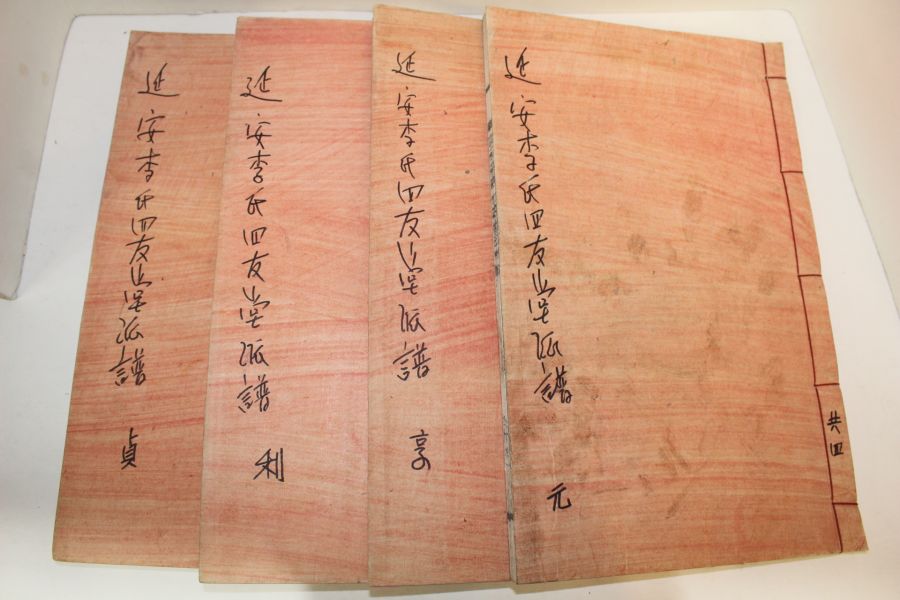 延安李氏四友堂派譜 元
共四
延安李氏四友堂派譜 亨
延安李氏四友堂派譜 利
延安李氏四友堂派譜 貞